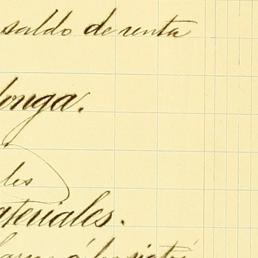 saldo de renta
longa.
les
ateriales.